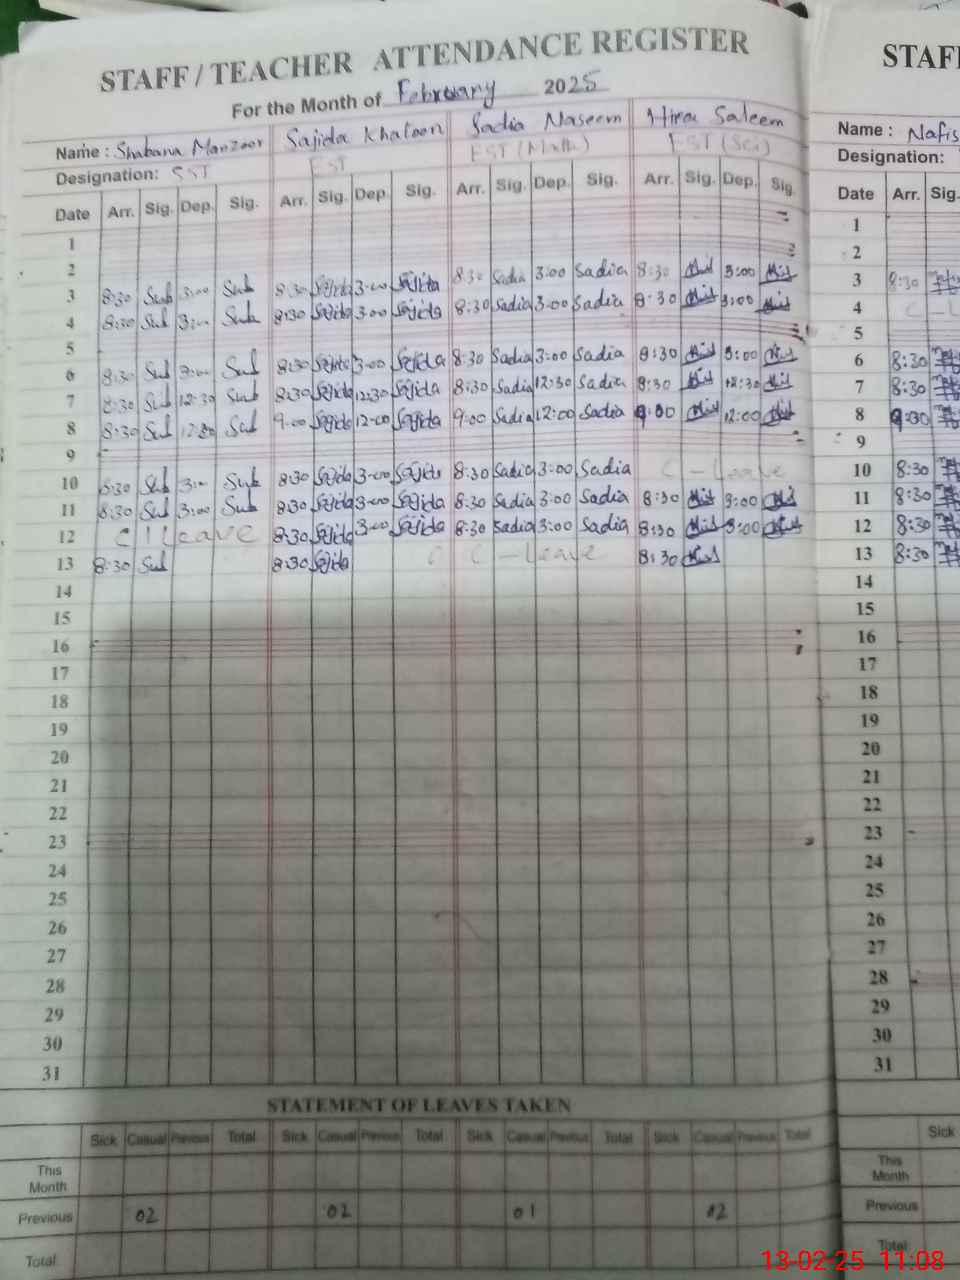 STAFF / TEACHER ATTENDANCE REGISTER
For the Month of February 2025
Name : Shabana Manzoor Sajida Khatoon Sadia Naseem Hira Saleem
Designation: SST EST EST (Math) EST (Sci)
Date Arr. Sig. Dep. Sig. Arr. Sig. Dep. Sig. Arr. Sig. Dep. Sig. Arr. Sig. Dep. Sig.
1
2
3 8:30 3:00 8:30 Sajida 3:00 Sajida 8:30 Sadia 3:00 Sadia 8:30 3:00
4 8:30 3:00 8:30 Sajida 3:00 Sajida 8:30 Sadia 3:00 Sadia 8:30 3:00
5
6 8:30 3:00 8:30 Sajida 3:00 Sajida 8:30 Sadia 3:00 Sadia 8:30 3:00
7 8:30 12:30 8:30 Sajida 12:30 Sajida 8:30 Sadia 12:30 Sadia 8:30 12:30
8 8:30 9:00 Sajida 12:00 Sajida 9:00 Sadia 12:00 Sadia 9:00 12:00
9
10 8:30 3:00 8:30 Sajida 3:00 Sajida 8:30 Sadia 3:00 Sadia C - Leave
11 8:30 3:00 8:30 Sajida 3:00 Sajida 8:30 Sadia 3:00 Sadia 8:30 3:00
12 C Leave 8:30 Sajida 3:00 Sajida 8:30 Sadia 3:00 Sadia 8:30 3:00
13 8:30 8:30 Sajida C - Leave 8:30
14
15
16
17
18
19
20
21
22
23
24
25
26
27
28
29
30
31
STATEMENT OF LEAVES TAKEN
Sick Casual Previous Total Sick Casual Previous Total Sick Casual Previous Total Sick Casual Previous Total
This Month
Previous 02 02 01 02
Total
STAF
Name : Nafis
Designation:
Date Arr. Sig.
1
2
3 8:30
4 C - L
5
6 8:30
7 8:30
8 9:30
9
10 8:30
11 8:30
12 8:30
13 8:30
14
15
16
17
18
19
20
21
22
23
24
25
26
27
28
29
30
31
Sick
This Month
Previous
Total
13-02-25 11:08